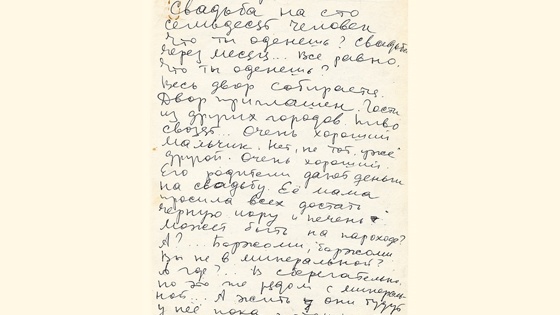 Свадьба на сто
семьдесят человек
Что ты оденешь? Свадьба
через месяц... Все равно.
Что ты оденешь?
Весь двор собирается.
Двор приглашен. Гости
из других городов. Пиво
свозят... Очень хороший
мальчик. Нет, не тот, уже
другой. Очень хороший.
Его родители дают деньги
на свадьбу. Её мама
просила всех достать
черную икру и печень.
Может быть на пароходе?
А?... Боржоми, боржоми
Вы не в минеральной?
А где?... В сберегательной
но это же рядом с минераль-
ной... А жить они будут
у неё пока